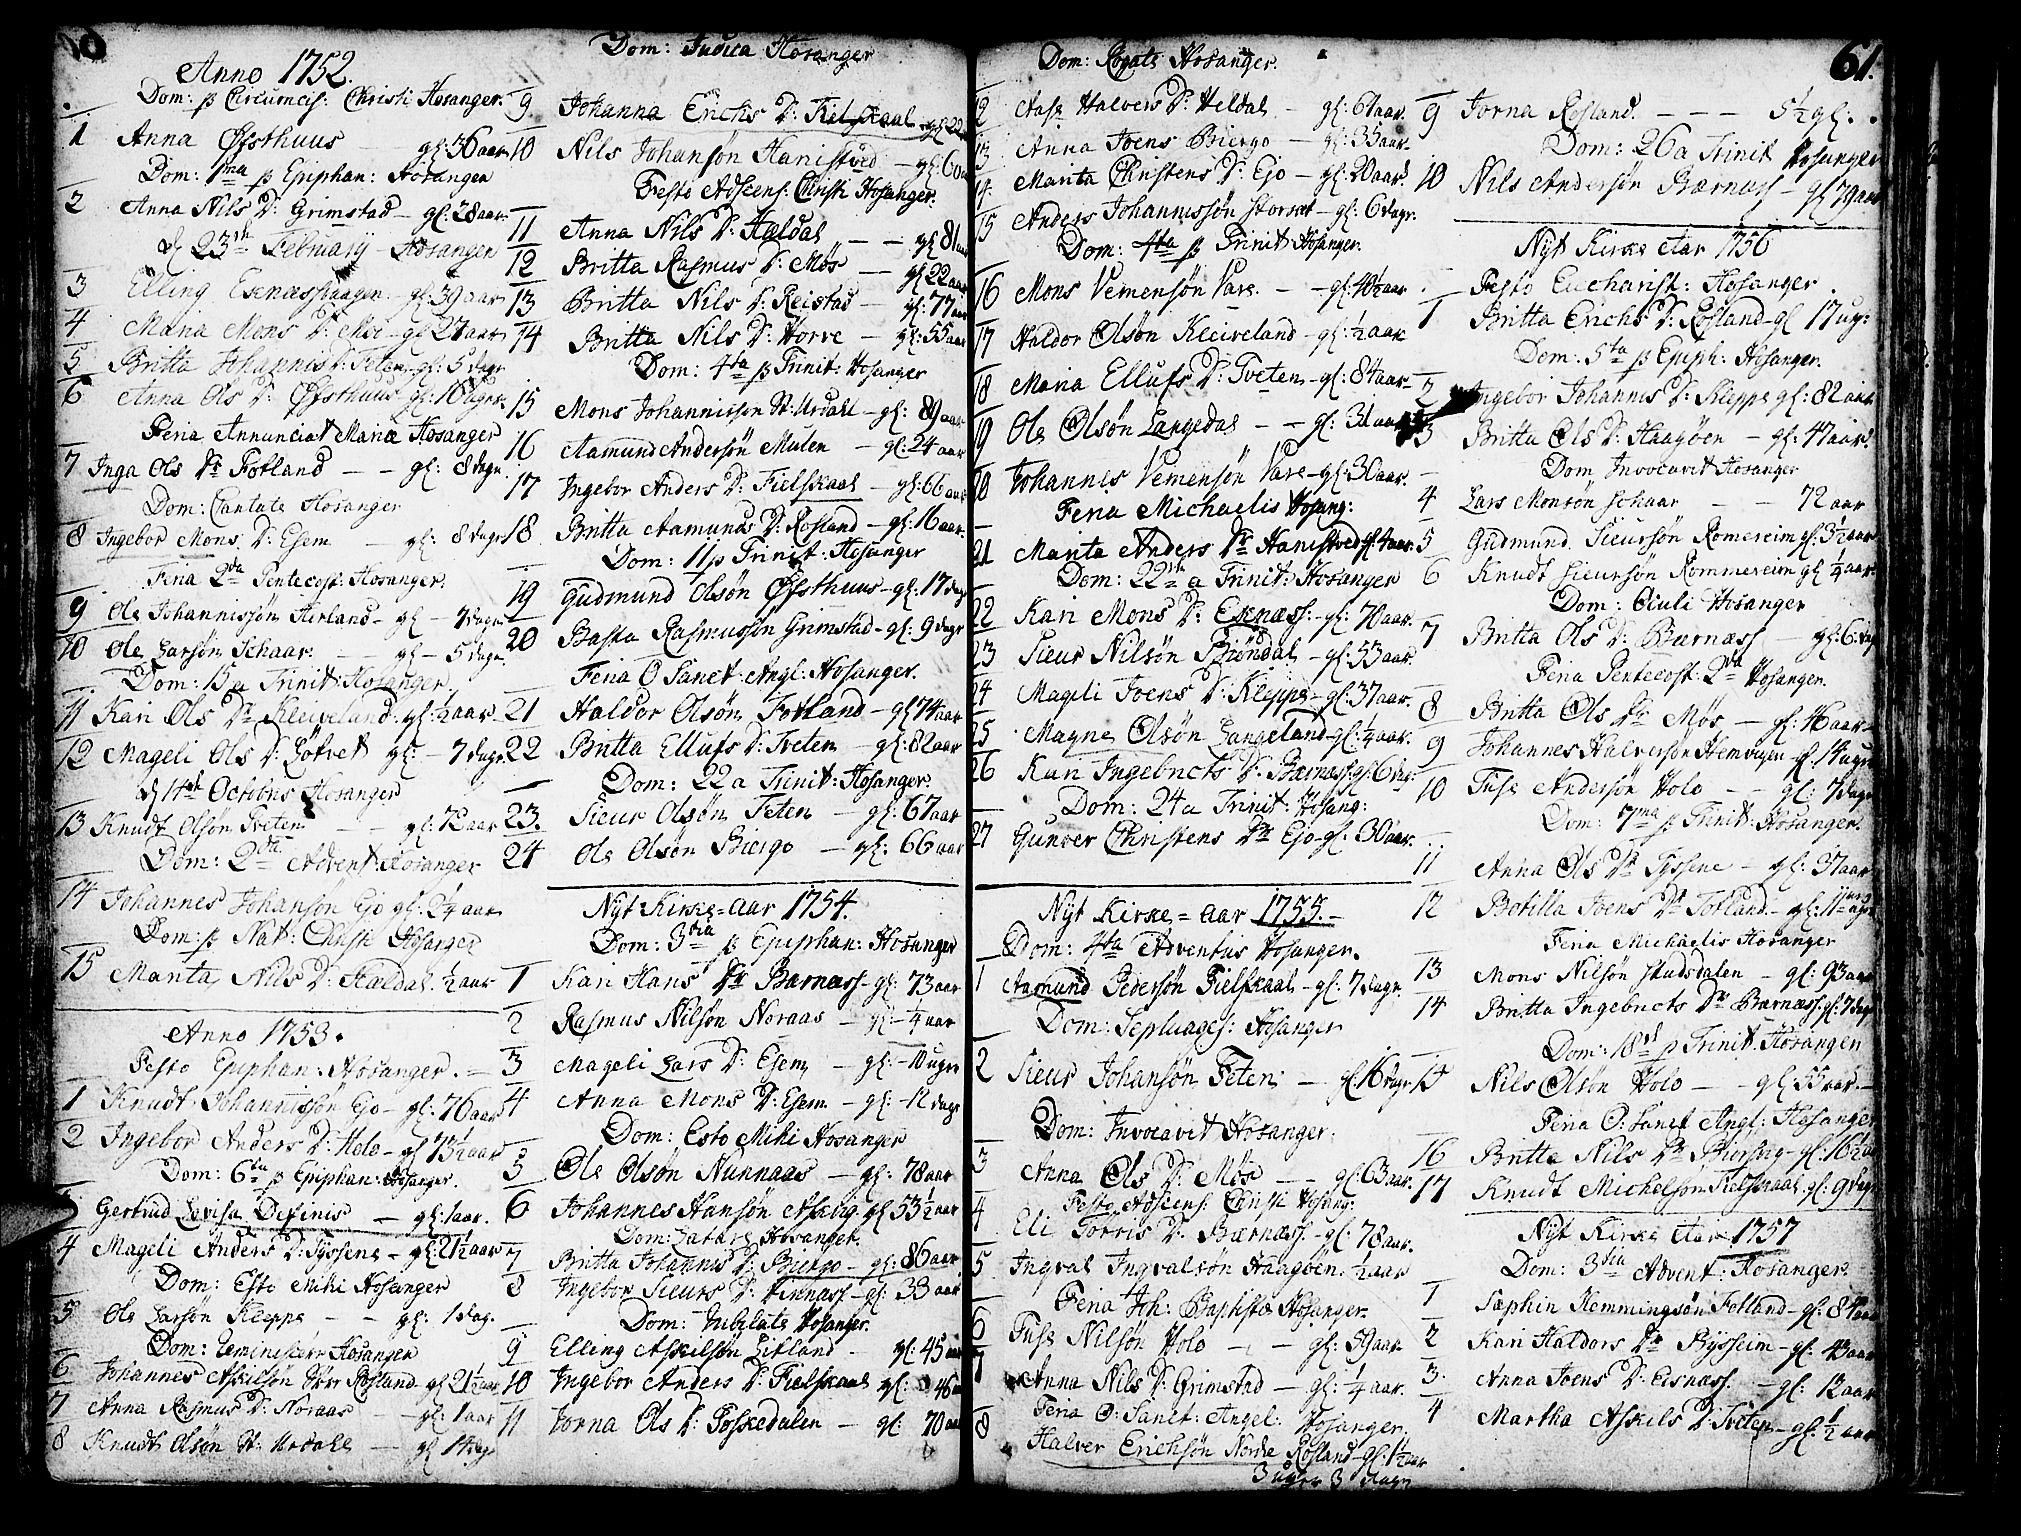 Anno 1752.
Dom: p Circumcis: Christi Hosanger.
1 Anna Øfsthuus gl: 36 aar
Dom: 1ma p Epiphan: Hosanger
2 Anna Nils D: Grimstad - gl: 28 aar
d 23 February - Hosanger
3 Elling Eknæsshaagen - gl: 39 aar
4 Maria Mons D: gl 27 aar
5 Britta Johannis D: Teten gl: 5 dagr
6 Anna Ols D: Øfsthuus gl: 16 dagr.
Feria Annunciat Mariæ Hosanger
7 Inga Ols Dr Fotland - - gl: 8 dagr
Dom: Cantate Hosanger
8 Ingebor Mons D: Esem - gl: 8 dagr
Feria 2da Pentecost: Hosanger.
9 Ole Johannissøn Hirland - gl - 7 dagr
10 Ole Larsøn Schaar. - gl - 5 dagr.
Dom: 15 a Trinit: Hosanger
11 Kari Ols Dr Kleiveland gl: ½ aar
12 Mageli Ols D: Løtvet gl: - 7 dagr
d 14 Octobris Hosanger
13 Knudt Olsøn Tveten - - gl: 72 aar
Dom: 2da Advent: Hosanger
14 Johannes Johansøn Ejo gl: 2¼ aar
Dom: p Nat: Christi Hosanger
15 Marita Nils D: Hældal ½ aar
Anno 1753.
Festo Epiphan: Hosanger.
1 Knudt Johannissøn Ejo - gl: 76 aar
2 Ingebor Anders D: Holo - gl 73½ aar
Dom: 6ta p Epiphan: Hosanger.
Gertrud Lovisa Definis - gl: 1 aar.
4 Mageli Anders D: Tyssene - gl: 21½ aar
Dom: Esto Mihi Hosanger
5 Ole Larsøn Kleppe - - gl: 1 dag.
Dom: Reminiscere Hosanger
6 Johannes Askilsøn Rosland gl 21½ aar
7 Anna Rasmus D: Noraas - gl: 1 aar
8 Knudt Olsøn St: Urdahl - gl 14 dagr
Dom: Judica Hosanger
9 Johanna Erichs D: Fielskaal gl 22
10 Nils Johansøn Hanistved - gl: 60
Festo Adscens: Christi Hosanger.
11 Anna Nils D: Hældal - - gl 81
12 Britta Rasmus D: Møs - gl 22 aar
13 Britta Nils D: Reistad - gl: 77 aar
14 Britta Nils D: Horre - gl: 55 aar
Dom: 4ta p Trinit: Hosanger
15 Mons Johannissøn St: Urdahl - gl: 89 aar
16 Aamund Andersøn Mulen - gl: 24 aar
17 Ingebor Anders D: Fielskaal - gl: 66 aar
18 Britta Aamunds D: Rosland - gl: 16 aar
Dom: 11 p Trinit: Hosanger
19 Gudmund Olsøn Øfsthuus - gl: 17 dagr
20 Basta Rasmussøn Grimstad - gl: 9 dagr
Feria O Sanct: Angl: Hosanger.
21 Haldor Olsøn Fotland - gl 74 aar
22 Britta Ellufs D: Tveten - gl: 82 aar
Dom: 22 a Trinit: Hosanger.
23. Sieur Olsøn Teten - gl: 67 aar
24 Ole Olsøn Biergo - gl: 66 aar
Nyt Kirke-aar 1754.
Dom: 3tia p Epiphan: Hosanger
1 Kari Hans Dr Bærnæss - gl: 73 aar
2 Rasmus Nilsøn Noraas - gl: ¼ aar
3 Mageli Lars D: Esem - gl: - 10 ugre
4 Anna Mons D: Esem - gl: - 12 dagr
Dom: Esto Mihi Hosanger
5 Ole Olsøn Nunnaas - gl: 78 aar
6 Johannes Hansøn Askeug gl 53½ aar
Dom: Lætare Hosanger.
7 Britta Johannis D: Biergo - gl: 86 aar
8 Ingebor Sieurs D: - gl: 33 aar
Dom: Jubilate Hosanger.
9 Elling Askilsøn Litland - gl: 45
10 Ingebor Anders D: Fielskaal gl: 46
11 Jorna Ols D: Foskedalen - gl: 70 aar
Dom: Rogate Hosanger.
12 Aase Halvors D: Heldal - gl: 67 aar.
13 Anna Joens Biergo - gl: 35 aar.
14 Marita Christens D: Ejo - gl: 20 aar
15 Anders Johannissøn Storset - gl: 6 dagr.
Dom: 4ta p Trinit: Hosanger.
16 Mons Vemensøn Vare. - - gl: 40½ aar
17 Haldor Olsøn Kleiveland - gl: ½ aar
18 Maria Ellufs D: Tveten - gl: 84 aar
19 Ole Olsøn Langedal - - gl: 31 aar
20 Johannes Vemensøn Vare - gl: 30 aar.
Feria Michaelis Hosang:
21 Marita Anders Dr Hanistved gl: 4 aar.
Dom: 22 a Trinit: Hosanger
22 Kari Mons D: Eknæss: - gl: 70 aar.
23 Sieur Nilsøn Biøndal - gl: 53 aar.
24 Mageli Joens D: Kleppe - gl: 37 aar.
25 Magne Olsøn Langeland - gl: ¼ aar.
26 Kari Ingebricts D: Bærnæss gl: 6 dagr
Dom: 24 a Trinit: Hosang:
27 Gunver Christens Dr Ejo gl: 30 aar.
Nyt Kirke-aar 1755.
Dom: 4ta Adventus Hosanger.
1 Aamund Pedersøn Fielskaal - gl: 7 dagr.
Dom: Septuages: Hosanger
2 Sieur Johansøn Teten - gl: 16 dagr
Dom: Invocavit Hosanger.
3 Anna Ols D: Møs - - gl: 63 aar.
Festo Adscens: Christi Hosang:
4 Eli Torris D: Bærnæss - gl: 78 aar.
5 Ingval Ingvalsøn Haagøen. ½ aar
Feria Joh: Baptistæ Hosanger.
6 Fuse Nilsøn Holo - - gl: 59 aar.
7 Anna Nils D: Grimstad - gl: ¼ aar.
Feria O: Sanct: Angel: Hosanger
8 Halver Erichsøn Nordre Rosland gl: 1½ aar
3 uger 3 dagr
61.
9 Jorna Rosland. - - - 5½ gl:.
Dom: 26 a Trinit Hosanger
10 Nils Andersøn Bærnæss - gl 79 aar
Nyt Kirke Aar 1756
Festo Eucharist: Hosanger.
1 Britta Erichs D: Rosland - gl 17 ugr:
Dom: 5ta p Epiph: Hosanger.
2 Ingebor Johannis D: Kleppe gl: 82 aar
3 Britta Ols D: Haagøen - gl: 47 aar.
Dom Invocavit Hosanger
4 Lars Monsøn Schaar - - 72 aar
5 Gudmund Sieursøn Romereim gl: 3½ aar
6 Knudt Sieursøn Rommereim gl ¼ aar.
Dom: Oculi Hosanger
7 Britta Ols D: Bærnæss - gl: 6 dag
Feria Pentecost: 2da Hosanger.
8 Britta Ols Dr Møs - gl: 46 aar
9 Johannes Halversøn Hemvigen gl: 14 ugr
10 Fuse Andersøn Holo - - gl: 7 dagr
Dom: 7ma p Trinit: Hosanger.
11 Anna Ols Dr Tyssene - gl: 37 aar
12 Botilla Joens Dr Totland - gl: 11 ugr
Feria Michaelis Hosanger
13 Mons Nilsøn Studsdalen - gl: 93 aar
14 Britta Ingebricts Dr Bærnæss: gl: 7 dagr
Dom: 18 p Trinit: Hosanger
15 Nils Olsøn Holo - - gl 55 aar.
Feria O: Sanct Angl: Hosanger
16 Britta Nils Dr - gl: 16½
17 Knudt Michelsøn Fielskaal gl: 9 dagr
Nyt Kirke Aar 1757
Dom: 3tia Advent: Hosanger.
1 Sæphin Hemmingsøn Fotland - gl: 84
2 Kari Haldors Dr Bysseim - gl: 43 aar
3. Anna Joens D: Eisnæss. - gl: 12 aar
4 Martha Askils D: Tveten - gl: ½ aar